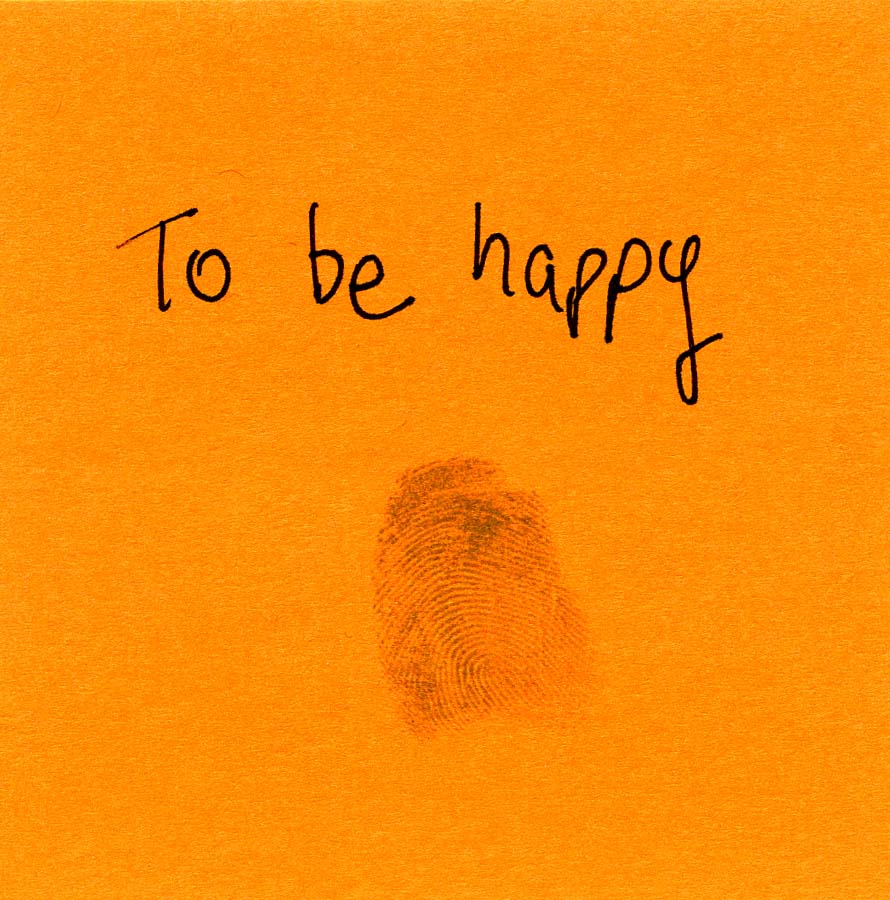 To be happy